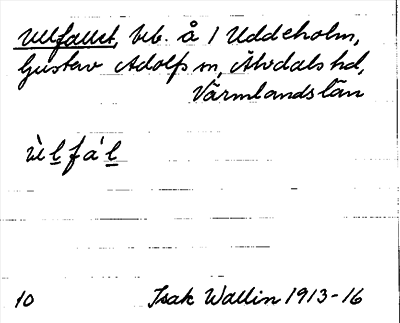 Ulvfallet, beb. å 1 Uddeholm,
Gustav Adolfs sn, Älvdals hd,
Värmlands län
10 Isak Wallin 1913-16